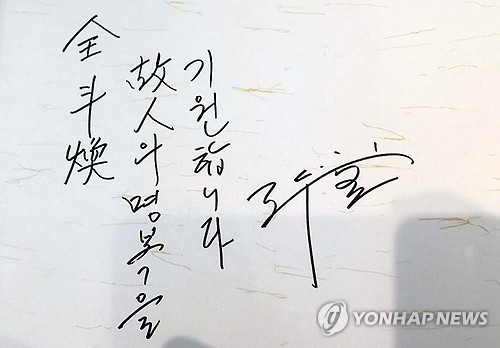 全斗煥
故人의 명복을
기원합니다
YONHAP NEWS